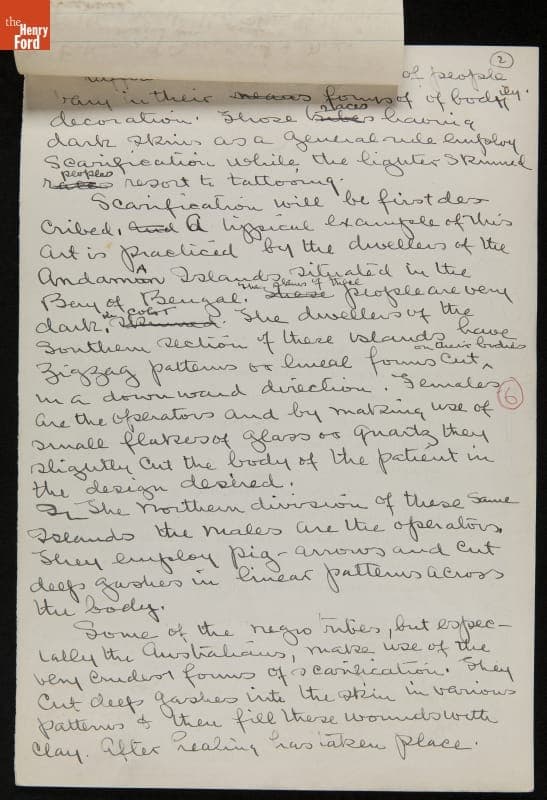 the
Henry
Ford
2
of people
vary in their means forms of of bodily
decoration. Those tribes races having
dark skins as a general rule employ
Scarification while the lighter skinned
races peoples resort to tattooing.
Scarification will be first des
cribed. And A typical example of this
art is practiced by the dwellers of the
Andaman Islands situated in the
Bay of Bengal. The skins of these these people are very
dark in color skinned. The dwellers of the
Southern section of these islands have
zigzag patterns or lineal forms cut on their bodies
in a downward direction. Females
6
are the operators and by making use of
small flakes of glass or quartz they
slightly cut the body of the patient in
the design desired.
In The northern division of these same
Islands the males are the operators.
They employ pig-arrows and cut
deep gashes in linear patterns across
the body.
Some of the negro tribes, but espec-
ially the Australians, make use of the
very crudest forms of scarification. They
cut deep gashes into the skin in various
patterns & then fill these wounds with
clay. After healing has taken place.